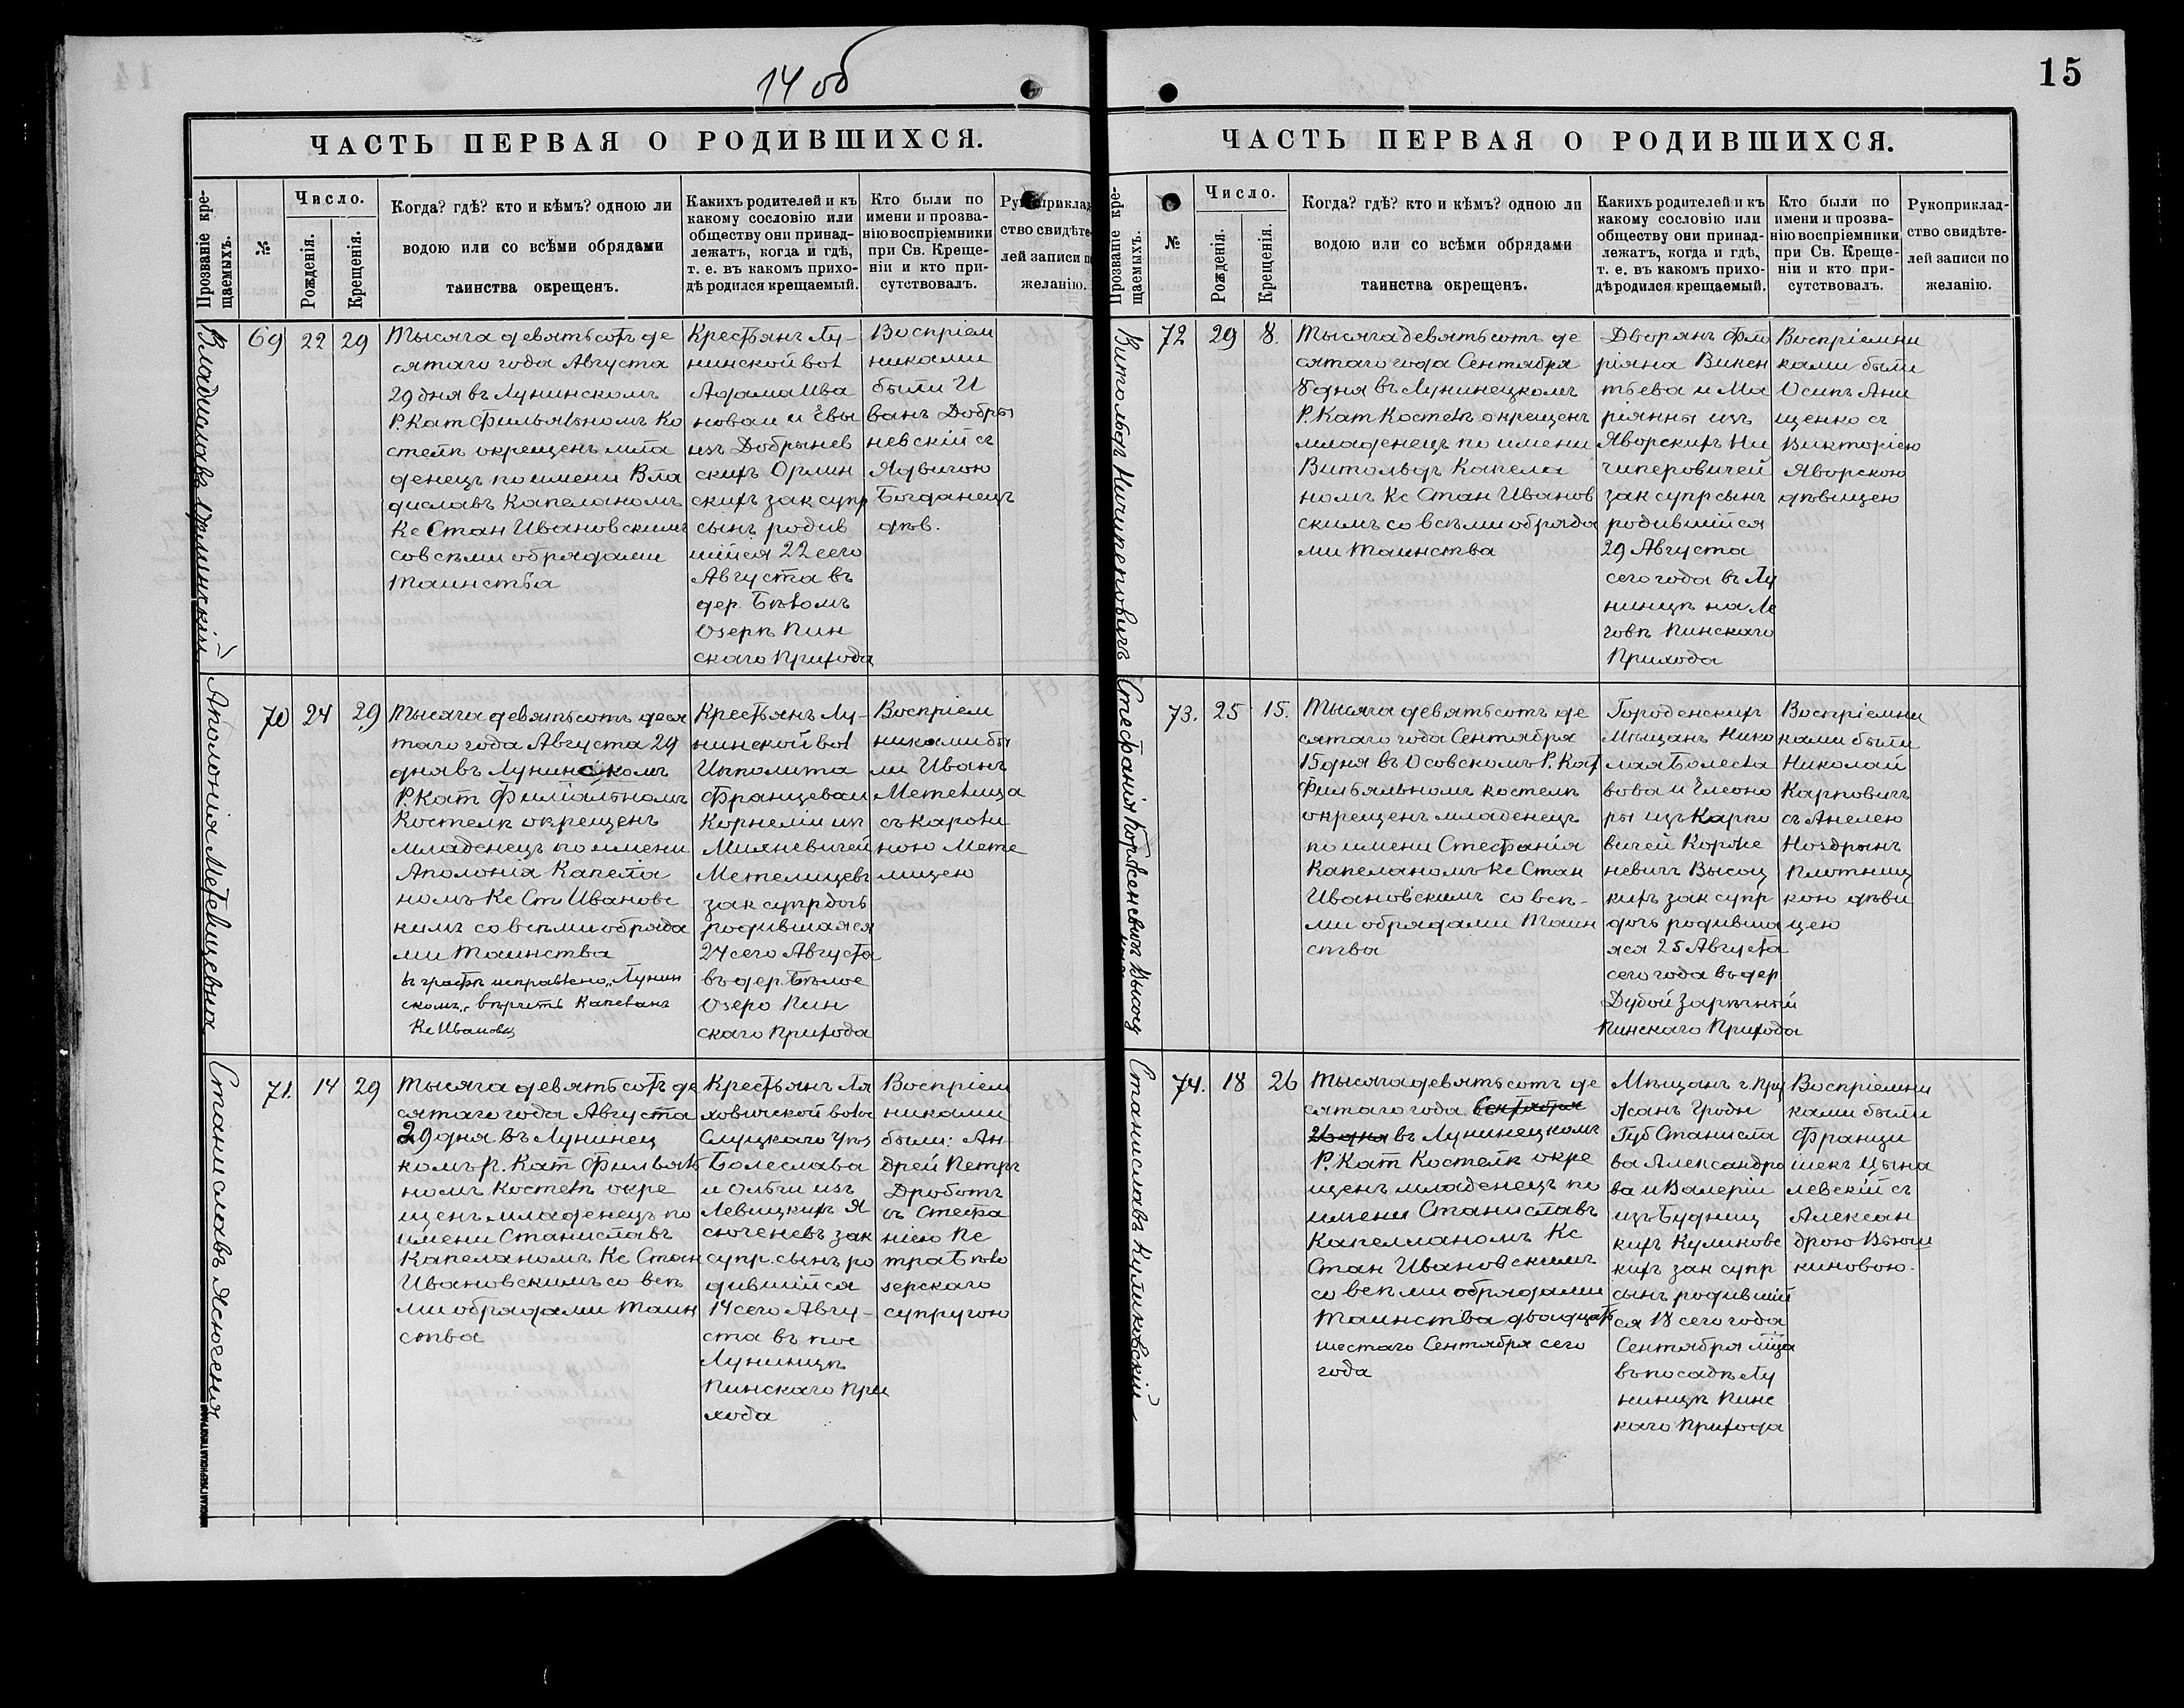 14 об
ЧАСТЬ ПЕРВАЯ О РОДИВШИХСЯ.
Прозваніе кре-
щаемыхъ.
№
Число.
Рожденія.
Крещенія.
Когда? гдѣ? кто и кѣмъ? одною ли
водою или со всѣми обрядами
таинства окрещенъ.
Какихъ родителей и къ
какому сословію или
обществу они принад-
лежатъ, когда и гдѣ,
т. е. въ какомъ прихо-
дѣ родился крещаемый.
Кто были по
имени и прозва-
нію воспріемники
при Св. Креще-
ніи и кто при-
сутствовалъ.
Рукоприклад
ство свидѣте-
лей записи п
желанію.
Владиславъ Орлинскій
69
22
29
Тысяча девятьсотъ де
сятаго года Августа
29 дня въ Лунинскомъ
Р. Кат Фильяльномъ Ко
стелѣ окрещенъ мла
денецъ по имени Вла
диславъ Капеланомъ
Кс Стан Ивановскимъ
со всѣми обрядами
Таинства
Крестьянъ Лу-
нинской вол
Адама Ива
нова и Евы
изъ Добрынев
скихъ Орлин
скихъ зак супр
сынъ родив
шійся 22 сего
Августа въ
дер. Бѣломъ
Озерѣ Пин
скаго Прихода
Воспріем
никами
были И
ванъ Добры
невскій съ
Ядвигою
Богданецъ
дѣв.
Аполонія Метелицевна
70
24
29
Тысяча девятьсотъ деся
таго года Августа 29
дня въ Лунинскомъ
Р. Кат Филіальномъ
Костелѣ окрещенъ
младенецъ по имени
Аполонія Капела
номъ Кс Ст Ивановс
кимъ со всѣми обряда
ми Таинства
въ графѣ исправлено „Лунин
скомъ„ вѣрить Капеланъ
Кс Ивановск
Крестьянъ Лу-
нинской вол
Ипполита
Францева и
Корнеліи из
Михневичей
Метелицевъ
зак супр дочь
родившаяся
24 сего Августа
въ дер Бѣлое
Озеро Пин
скаго Прихода
Воспріем
никами бы
ли Иванъ
Метелица
съ Кароли
ною Мете
лицею
Станиславъ Ясюченя
71.
14
29
Тысяча девятьсотъ де
сятаго года Августа
29 дня въ Лунинец
комъ Р. Кат Фильяль
номъ Костелѣ окре
щенъ младенецъ по
имени Станиславъ
Капеланомъ Кс Стан
Ивановскимъ со всѣ
ми обрядами Таин
ства
Крестьянъ Ля
ховичской вола
Слуцкаго Уѣз
Болеслава
и Ольги изъ
Левицкихъ Я
сюченевъ зак
супр. сынъ ро
дившійся
14 сего Авгу-
ста въ пос
Лунинцѣ
Пинскаго При
хода
Воспріем
никами
были: Ан-
дрей Петръ
Дроботъ
съ Стефа
ніею Пе
тра Бѣло
зерскаго
супругою
15
ЧАСТЬ ПЕРВАЯ О РОДИВШИХСЯ.
Прозваніе кре-
щаемыхъ.
№
Число.
Рожденія.
Крещенія.
Когда? гдѣ? кто и кѣмъ? одною ли
водою или со всѣми обрядами
таинства окрещенъ.
Какихъ родителей и къ
какому сословію или
обществу они принад-
лежатъ, когда и гдѣ,
т. е. въ какомъ прихо-
дѣ родился крещаемый.
Кто были по
имени и прозва-
нію воспріемники
при Св. Креще-
ніи и кто при-
сутствовалъ.
Рукоприклад-
ство свидѣте-
лей записи по
желанію.
Витольдъ Ничипеповичъ
72
29
8.
Тысяча девятьсотъ де
сятаго года Сентября
8 дня въ Лунинецкомъ
Р. Кат Костелѣ окрещенъ
младенецъ по имени
Витольдъ Капела
номъ Кс Стан Иванов
скимъ со всѣми обряда
ми Таинства
Дворянъ Фло
ріяна Викен
тьева и Ма
ріянны изъ
Яворскихъ Ни
чиперовичей
зак супр сынъ
родившійся
29 Августа
сего года въ Лу
нинцѣ на Ле
говѣ Пинскаго
Прихода
Воспріемни
ками были
Осипъ Ани
щенко съ
Викторіею
Яворскою
дѣвицею
Стефанія Корженевичъ Высоц
73.
25
15.
Тысяча девятьсотъ де
сятаго года Сентября
15 дня въ Осовскомъ Р. Кат
Фильяльномъ костелѣ
окрещенъ младенецъ
по имени Стефанія
Капеланомъ Кс Стан
Ивановскимъ со всѣ-
ми обрядами Таин
ства
Городенскихъ
Мѣщанъ Нико
лая Болесла
вова и Елеоно
ры изъ Карпо
вичей Корже
невичъ Высоц
кихъ зак супр
дочь родивша
яся 25 Августа
сего года въ дер
Дубой Зарѣчный
Пинскаго Прихода
Воспріемни
ками были
Николай
Карповичъ
съ Анелею
Ноздрынъ
Плотниц
кою дѣви
цею
Станиславъ Куликовскій
74.
18
26
Тысяча девятьсотъ де
сятаго года Сентября
26 дня въ Лунинецкомъ
Р. Кат Костелѣ окре
щенъ младенецъ по
имени Станиславъ
Капелланомъ Кс
Стан Ивановскимъ
со всѣми обрядами
Таинства двадцать
шестаго Сентября сего
года
Мѣщанъ г. Пру
жанъ Гродн
Губ Станисла
ва Александро
ва и Валеріи
изъ Будниц
кихъ Куликовс
кихъ зак супр
сынъ родившій
ся 18 сего года
Сентября мца
въ посадѣ Лу
нинцѣ Пинс
каго Прихода
Воспріемни
ками были
Франци
шекъ Цына
левскій съ
Алексан
дрою Вьюш
киновою.